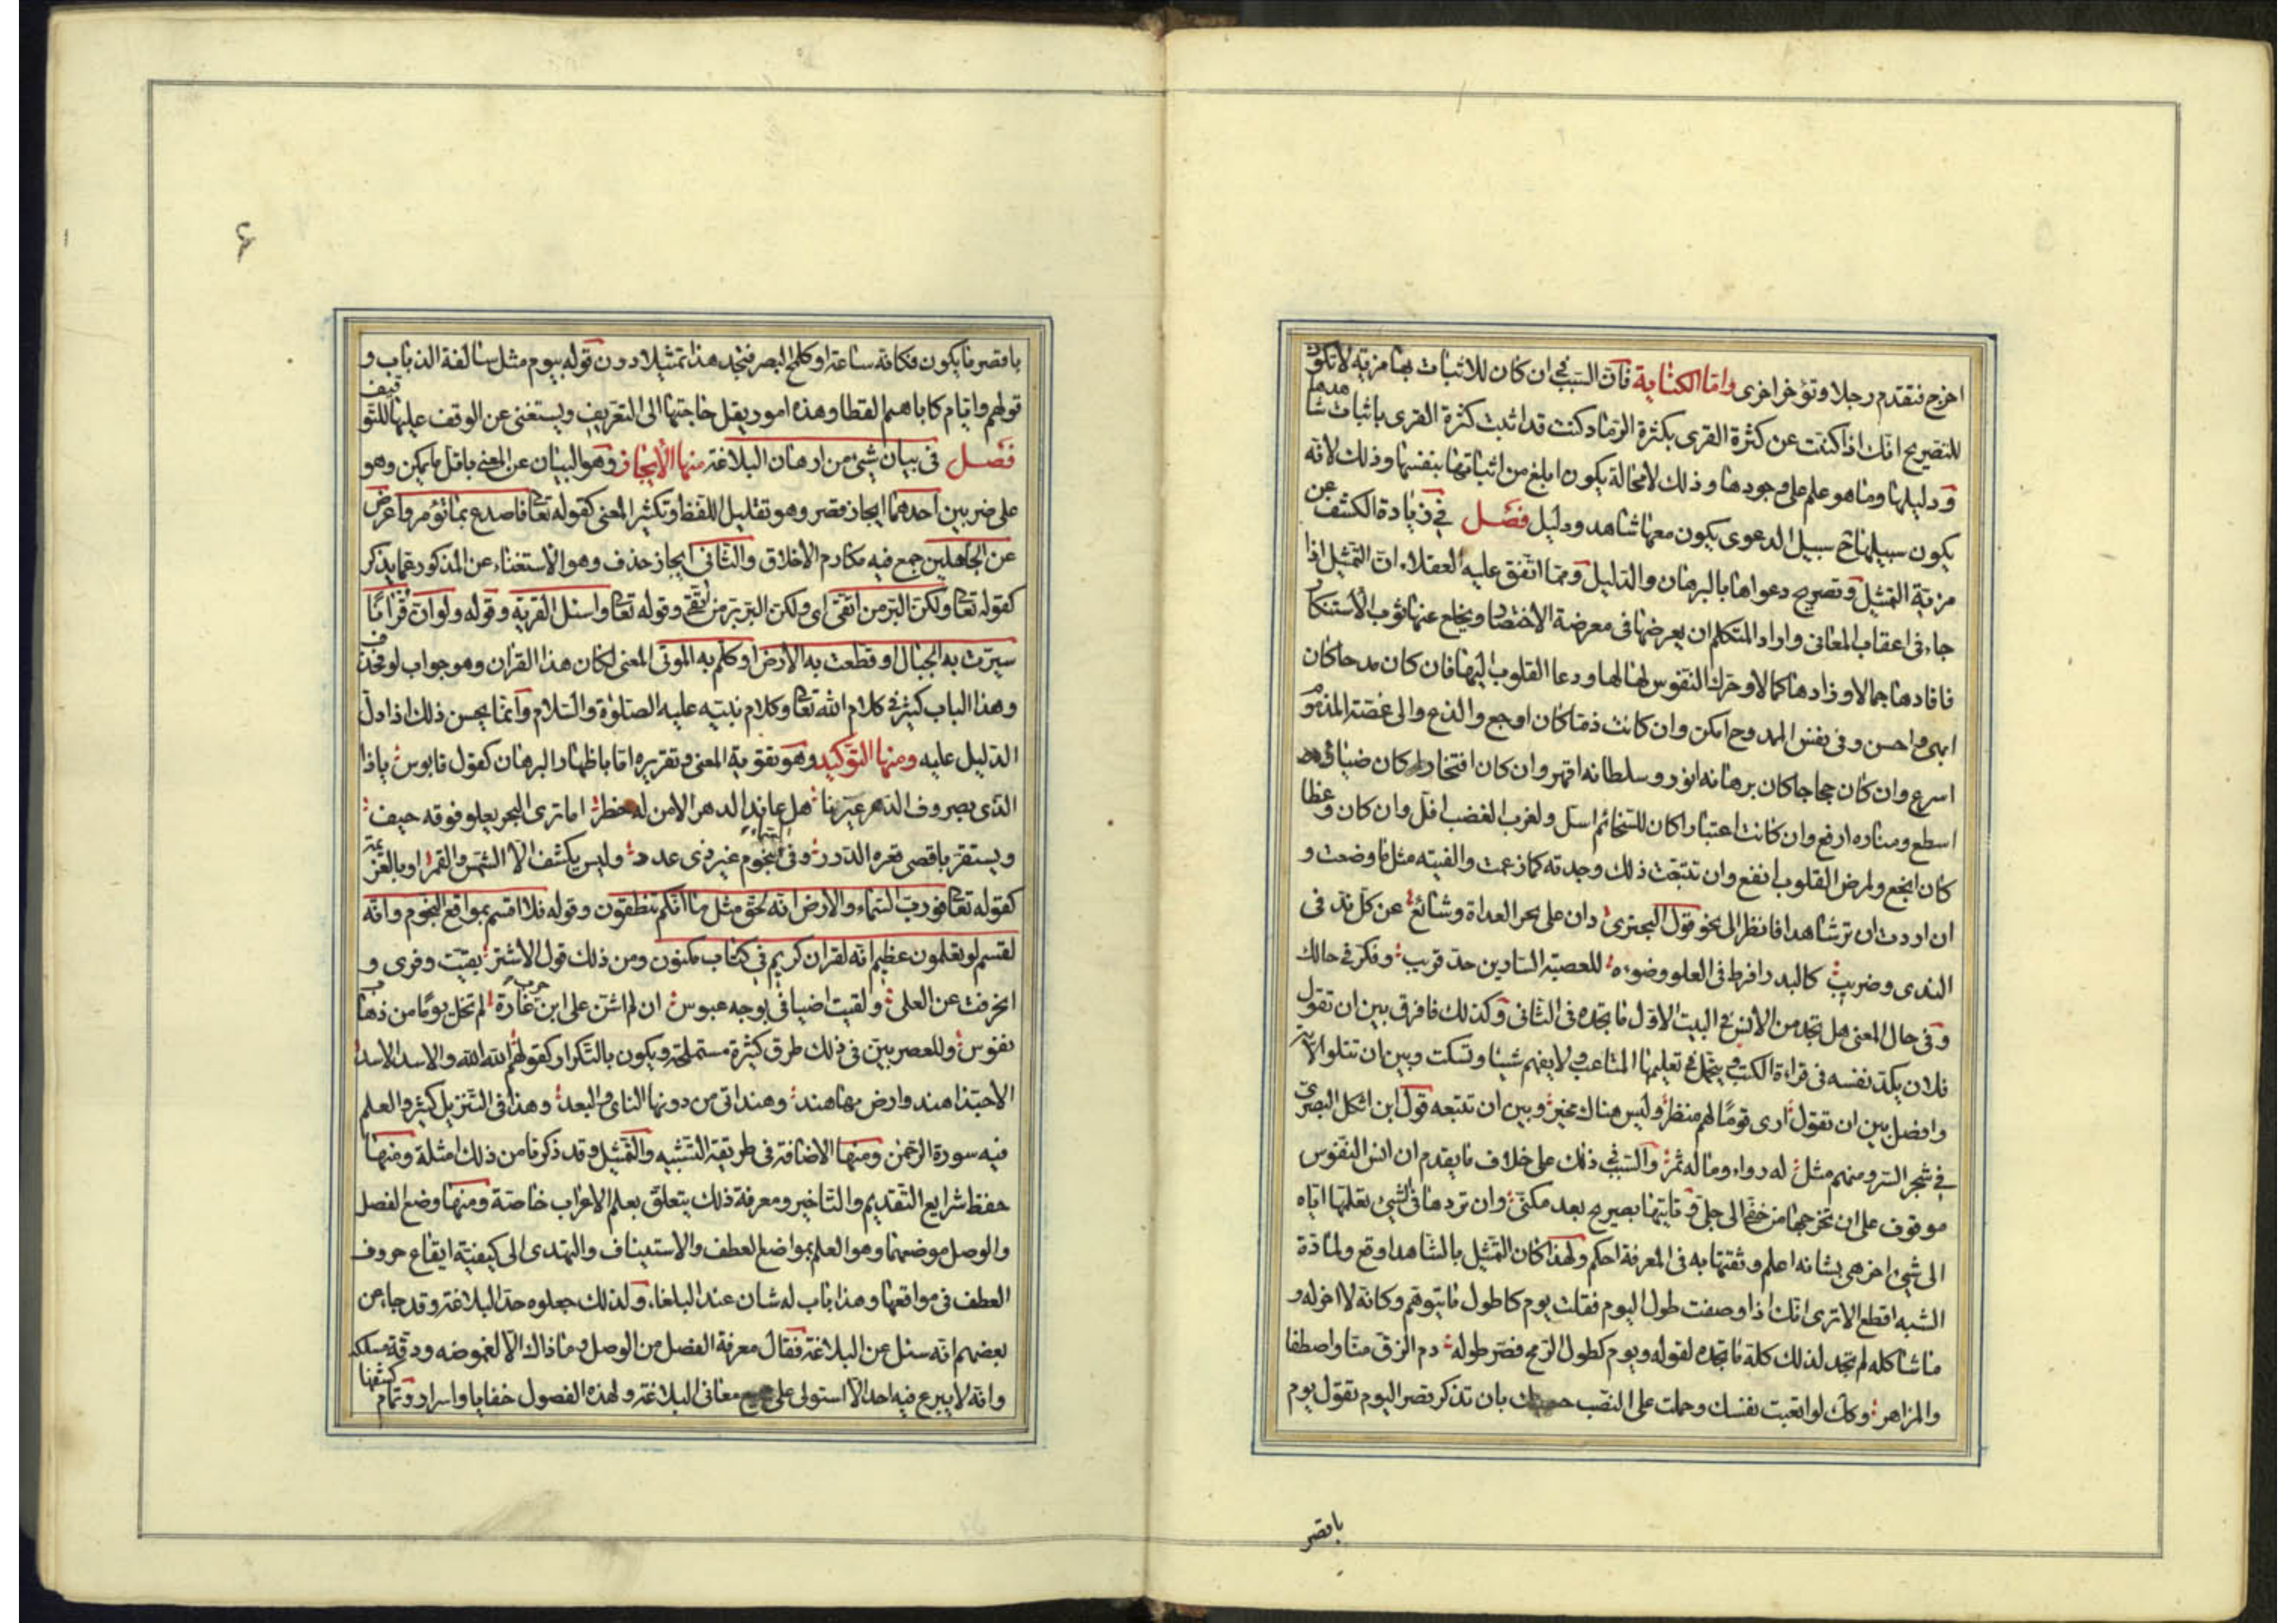 اخرى فتقدم رجلا وتؤخر اخرى واما الكناية فان السبب في ان كان للاثبات بها مزية لا تكون
للتصريح انك اذا كنيت عن كثرة القرى بكثرة الرماد كنت قد اثبت كثرة القرى باثبات شاهدها
ودليلها وما هو علم على وجودها وذلك لا محالة يكون ابلغ من اثباتها بنفسها وذلك لانه
يكون سبيلها ح سبيل الدعوى يكون معها شاهد ودليل فصل في زيادة الكشف عن
مزية التمثيل وتصريح دعواها بالبرهان والدليل ومما اتفق عليه العقلاء ان التمثيل اذا
جاء في اعقاب المعاني واراد المتكلم ان يعرضها في معرضة الاختصار ويخلع عنها ثوب الاستنكار
فافادها جمالا وزادها كمالا وحرك النفوس لها ودعا القلوب اليها فان كان مدحا كان
ابهى واحسن وفي نفس الممدوح امكن وان كانت ذما كان اوجع والذع والى غصته المذموم
اسرع وان كان حجاجا كان برهانه انور وسلطانه اقهر وان كان افتخارا كان ضياؤه
اسطع ومناره ارفع وان كانت اعتبارا كان للسخائم اسل ولغرب الغضب افل وان كان وعظا
كان انجع ولمرض القلوب انفع وان تتبعت ذلك وجدته كما زعمت والفيته مثل ما وضعت و
ان اردت ان تر شاهدا فانظر الى نحو قول البحتري دان على بحر العداة وشائع عن كل ند في
الندى وضريب كالبدر افرط في العلو وضوءه للعصبة السارين حد قريب وفكر في حالك
وفي حال المعنى هل تجد من الانس في البيت الاول ما تجده في الثاني وكذلك ما فرق بين ان تقول
فلان يكد نفسه في قراءة الكتب ويتحمل في تعليمها المتاعب ولا يفهم شيئا وتسكت وبين ان تتلوا الآية
وافضل بين ان تقول ارى قوما لهم منظر وليس هناك مخبر وبين ان تتبعه قول ابن لنكك البصري
في شجر السرو منهم مثل له رواء وما له ثمر والسبب في ذلك على خلاف ما يقدم ان انس النفوس
موقوف على ان تخرجها من خفي الى جلي وتاتيها بصريح بعد مكنى وان تردها في الشيئ تعلمها اياه
الى شيئ اخر هي بشانه اعلم وثقتها به في المعرفة احكم ولهذا كان التمثيل بالشاهد اوقع ولمادة
الشبه اقطع الا ترى انك اذا وصفت طول اليوم فقلت يوم كاطول ما يتوهم وكانه لا اخر له و
ما شاكله لم تجد لذلك كله ما تجده لقوله ويوم كطول الرمح قصر طوله دم الزق منا واصطفا
والمزاهر وكان لو اتعبت نفسك وحملت على النصب بان تذكر بقصر اليوم تقول يوم
باقصر
۶
باقصر ما يكون فكانه ساعة او كلمح البصر فتجد هذا تمثيلا دون قوله بيوم مثل سالفة الذباب و
قولهم وايام كاباهم القطا وهذه امور يقل حاجتها الى التعريف ويستغنى عن الوقف عليها للتوقيف
فصل في بيان شيئ من ارهان البلاغة منها الايجاز وهو البيان عن المعنى باقل ما يمكن وهو
على ضربين احدهما ايجاز قصر وهو تقليل اللفظ وتكثير المعنى كقوله تعا فاصدع بما تؤمر واعرض
عن الجاهلين جمع فيه مكارم الاخلاق والثاني ايجاز حذف وهو الاستغناء عن المذكور عما يذكر
كقوله تعا ولكن البر من اتقى اى ولكن البر بر من اتقى وقوله تعا واسئل القرية وقوله ولو ان قرانا
سيرت به الجبال او قطعت به الارض او كلم به الموتى المعنى لكان هذا القران وهو جواب لو فحذف
وهذا الباب كثير في كلام الله تعا وكلام نبيه عليه الصلوة والسلام وانما يحسن ذلك اذا دل
الدليل عليه ومنها التوكيد وهو تقوية المعنى وتقريره اما باظهار البرهان كقول قابوس ياذا
الذي بصروف الدهر عيرنا هل عاند الدهر الا من له خطر اما ترى البحر يعلو فوقه جيف
ويستقر باقصى قعره الدرر وفي السماء نجوم غير ذى عدد وليس يكسف الا الشمس والقمر او بالعزيمة
كقوله تعا فورب السماء والارض انه لحق مثل ما انكم تنطقون وقوله فلا اقسم بمواقع النجوم وانه
لقسم لو تعلمون عظيم انه لقران كريم في كتاب مكنون ومن ذلك قول الاشتر بقيت وفرى و
انحرفت عن العلى ولقيت اضيافي بوجه عبوس ان لم اشن على ابن حرب غارة لم تخل يوما من ذهاب
نفوس وللعصريين في ذلك طرق كثيرة مستملحة ويكون بالتكرار كقولهم الله الله والاسد الاسد
الا حبذا هند وارض بها هند وهند اتى من دونها الناى والبعد وهذا في التنزيل كثير والعلم
فيه سورة الرحمن ومنها الاضافة في طريقة التشبيه والتمثيل وقد ذكرنا من ذلك امثلة ومنها
حفظ شرايع التقديم والتاخير ومعرفة ذلك يتعلق بعلم الاعراب خاصة ومنها وضع الفصل
والوصل موضعهما وهو العلم بمواضع العطف والاستيناف والتهدى الى كيفية ايقاع حروف
العطف في مواقعها وهذا باب له شان عند البلغاء ولذلك جعلوه حد البلاغة وقد جاء عن
بعضهم انه سئل عن البلاغة فقال معرفة الفصل من الوصل وما ذاك الا لغموضه ودقة مسلكه
وانه لا يبرع فيه احد الا استولى على معاني البلاغة ولهذه الفصول خفايا واسرار وتمام كشفها